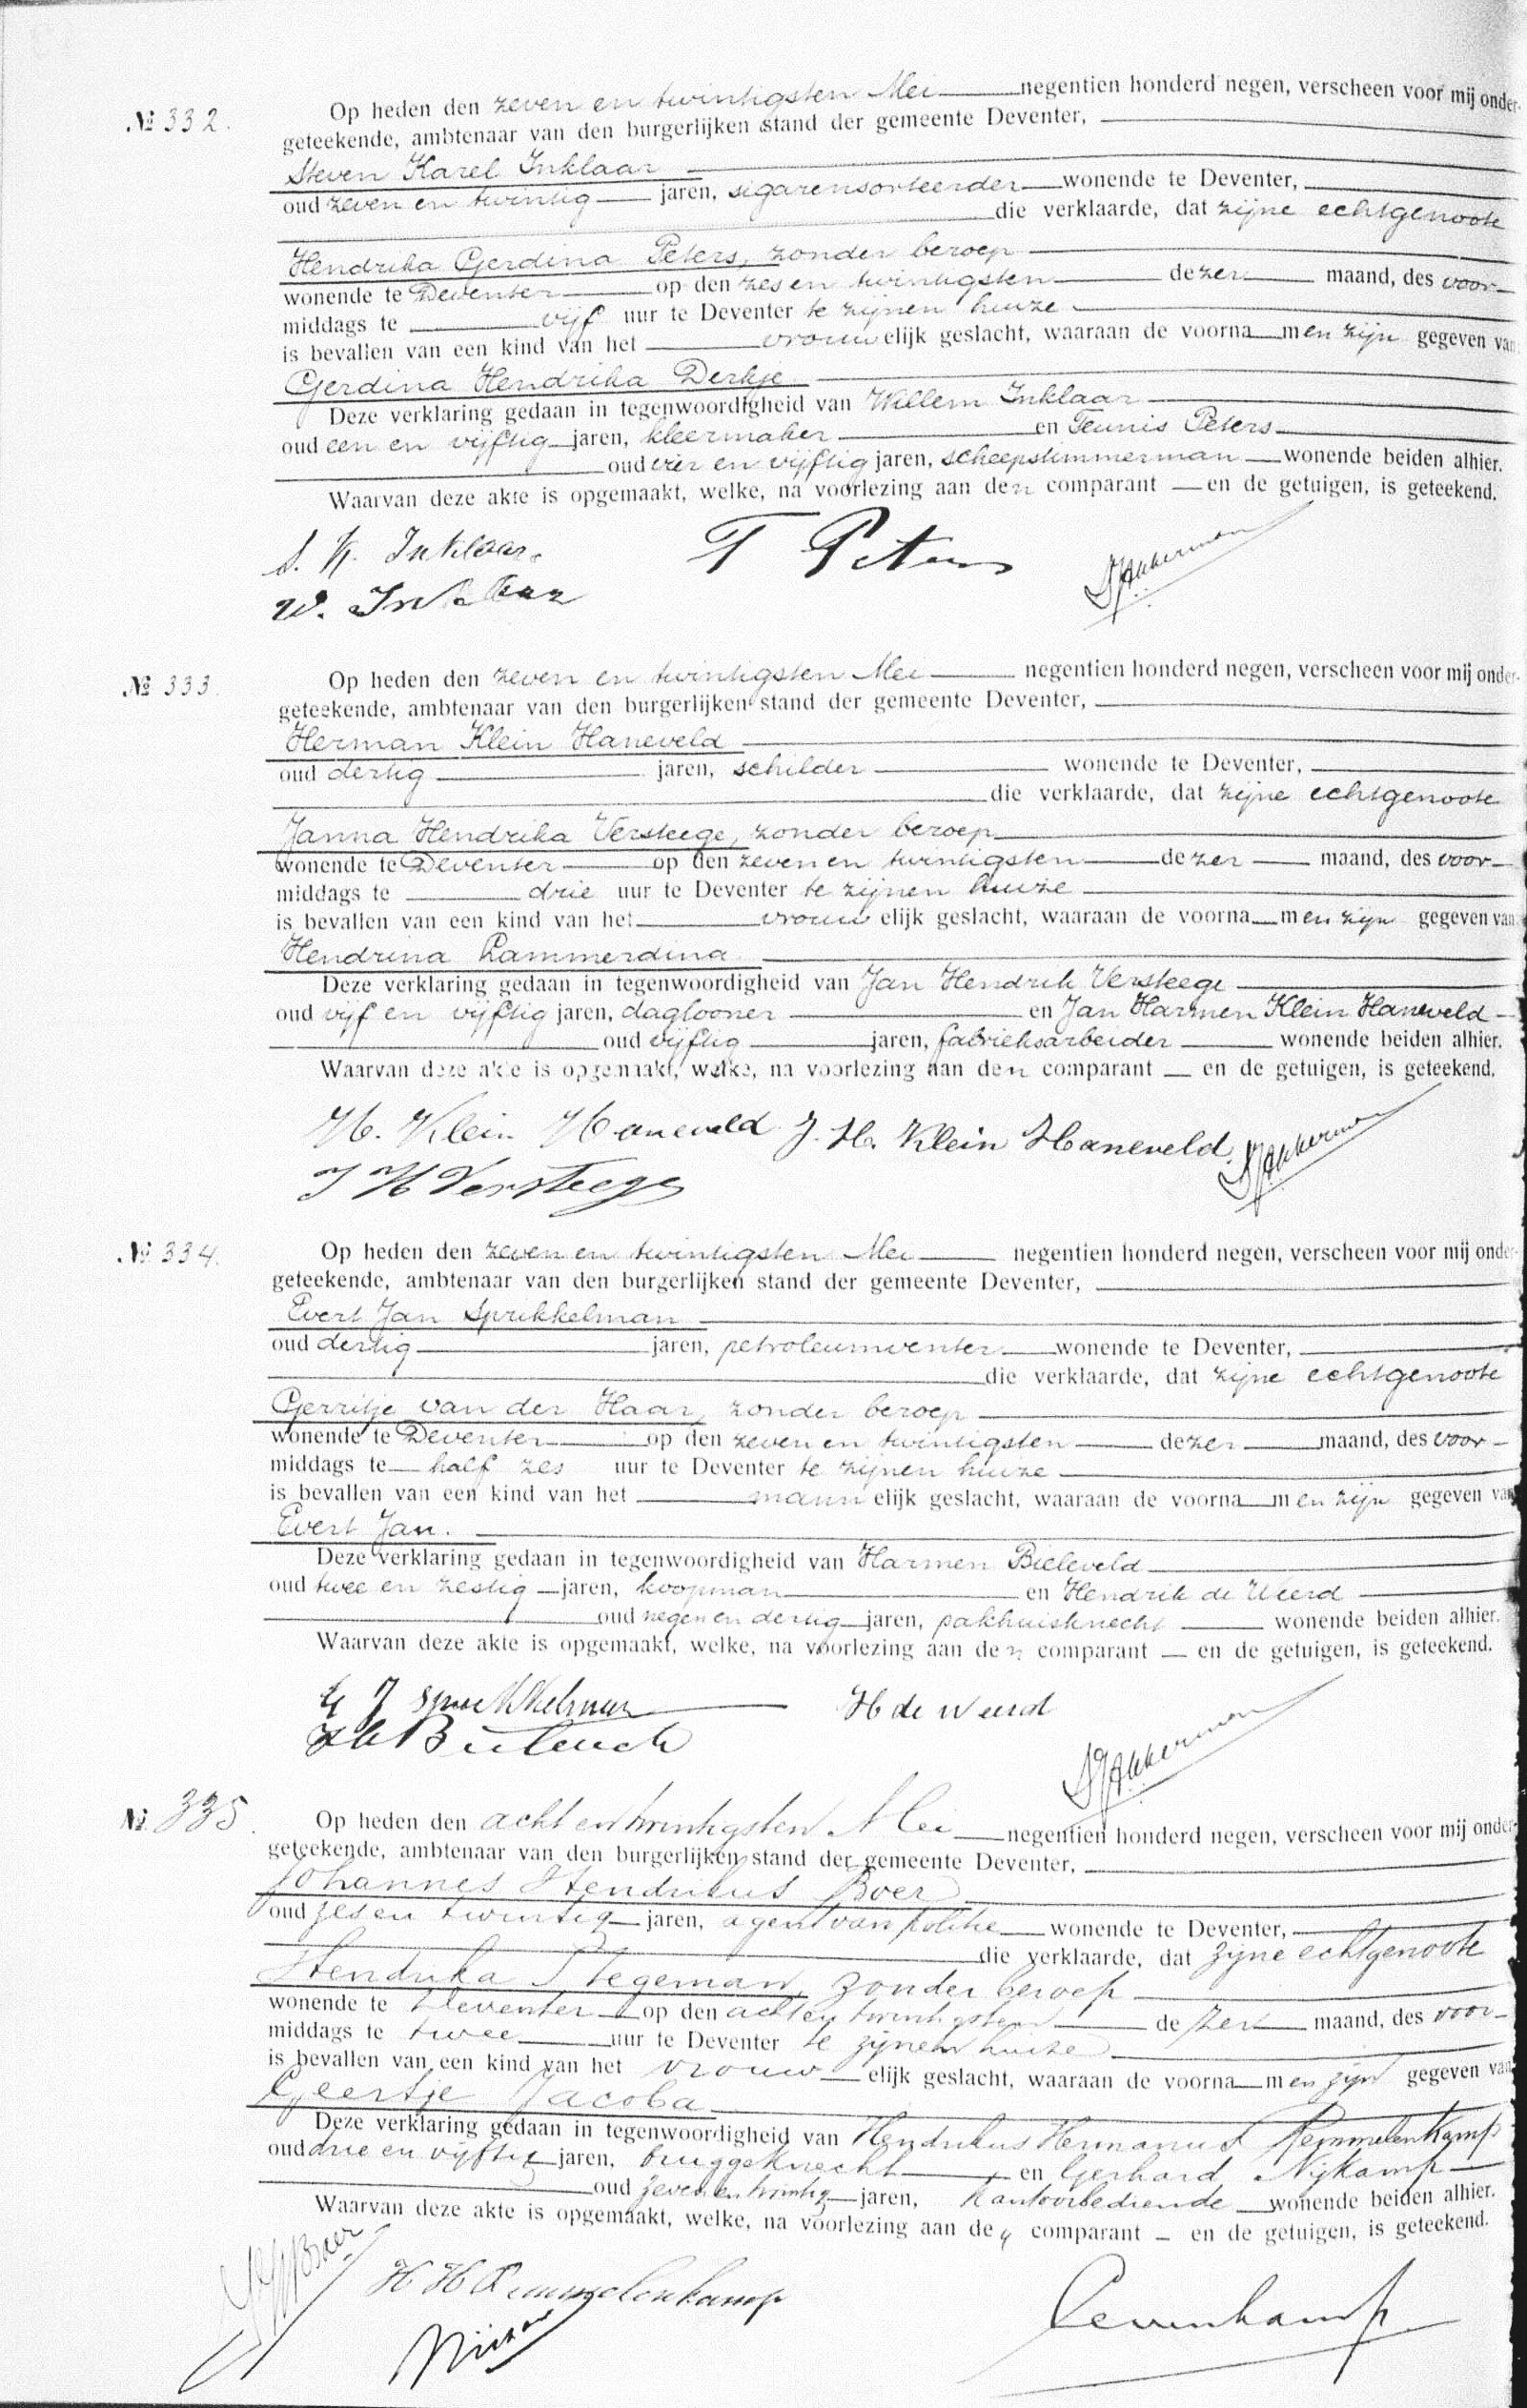 № 332.
Op heden den zeven en twintigsten Mei negentien honderd negen, verscheen voor mij onder-
geteekende, ambtenaar van den burgerlijken stand der gemeente Deventer,
Steven Karel Inklaar
oud zeven en twintig jaren, sigarensorteerder wonende te Deventer,
die verklaarde, dat zijne echtgenoote
Hendrika Gerdina Peters, zonder beroep
wonende te Deventer op den zes en twintigsten dezer maand, des voor-
middags te vijf uur te Deventer te zijnen huize
is bevallen van een kind van het vrouwelijk geslacht, waaraan de voornamen zijn gegeven van
Gerdina Hendrika Derkje
Deze verklaring gedaan in tegenwoordigheid van Willem Inklaar
oud een en vijftig jaren, kleermaker en Teunis Peters
oud vier en vijftig jaren, scheepstimmerman wonende beiden alhier.
Waarvan deze akte is opgemaakt, welke, na voorlezing aan den comparant en de getuigen, is geteekend.
S. K. Inklaar. T Peters
W. Inklaar Akkerman
№ 333.
Op heden den zeven en twintigsten Mei negentien honderd negen, verscheen voor mij onder-
geteekende, ambtenaar van den burgerlijken stand der gemeente Deventer,
Herman Klein Haneveld
oud dertig jaren, schilder wonende te Deventer,
die verklaarde, dat zijne echtgenoote
Janna Hendrika Versteege, zonder beroep
wonende te Deventer op den zeven en twintigsten dezer maand, des voor-
middags te drie uur te Deventer te zijnen huize
is bevallen van een kind van het vrouwelijk geslacht, waaraan de voornamen zijn gegeven van
Hendrina Lammerdina
Deze verklaring gedaan in tegenwoordigheid van Jan Hendrik Versteege
oud vijf en vijftig jaren, daglooner en Jan Harmen Klein Haneveld
oud vijftig jaren, fabrieksarbeider wonende beiden alhier.
Waarvan deze akte is opgemaakt, welke, na voorlezing aan den comparant en de getuigen, is geteekend.
H. Klein Haneveld J. H. Klein Haneveld. Akkerman
J H Versteege
№ 334.
Op heden den zeven en twintigsten Mei negentien honderd negen, verscheen voor mij onder-
geteekende, ambtenaar van den burgerlijken stand der gemeente Deventer,
Evert Jan Sprikkelman
oud dertig jaren, petroleumventer wonende te Deventer,
die verklaarde, dat zijne echtgenoote
Gerritje van der Haar, zonder beroep
wonende te Deventer op den zeven en twintigsten dezer maand, des voor-
middags te half zes uur te Deventer te zijnen huize
is bevallen van een kind van het mannelijk geslacht, waaraan de voornamen zijn gegeven van
Evert Jan.
Deze verklaring gedaan in tegenwoordigheid van Harmen Bieleveld
oud twee en zestig jaren, koopman en Hendrik de Weerd
oud negen en dertig jaren, pakhuisknecht wonende beiden alhier.
Waarvan deze akte is opgemaakt, welke, na voorlezing aan den comparant en de getuigen, is geteekend.
E J Sprikkelman H de Weerd
Akkerman
№ 335.
Op heden den acht en twintigsten Mei negentien honderd negen, verscheen voor mij onder-
geteekende, ambtenaar van den burgerlijken stand der gemeente Deventer,
Johannes Hendrikus Boer
oud zes en twintig jaren, agent van politie wonende te Deventer,
die verklaarde, dat zijne echtgenoote
Hendrika Stegeman, zonder beroep
wonende te Deventer op den acht en twintigsten dezer maand, des voor-
middags te twee uur te Deventer te zijnen huize
is bevallen van een kind van het vrouwelijk geslacht, waaraan de voornamen zijn gegeven van
Geertje Jacoba
Deze verklaring gedaan in tegenwoordigheid van Hendrikus Hermanus Remmelenkamp
oud drie en vijftig jaren, bruggeknecht en Gerhard Nijkamp
oud zeven en twintig jaren, kantoorbediende wonende beiden alhier.
Waarvan deze akte is opgemaakt, welke, na voorlezing aan den comparant en de getuigen, is geteekend.
JHBoer H H Remmelenkamp